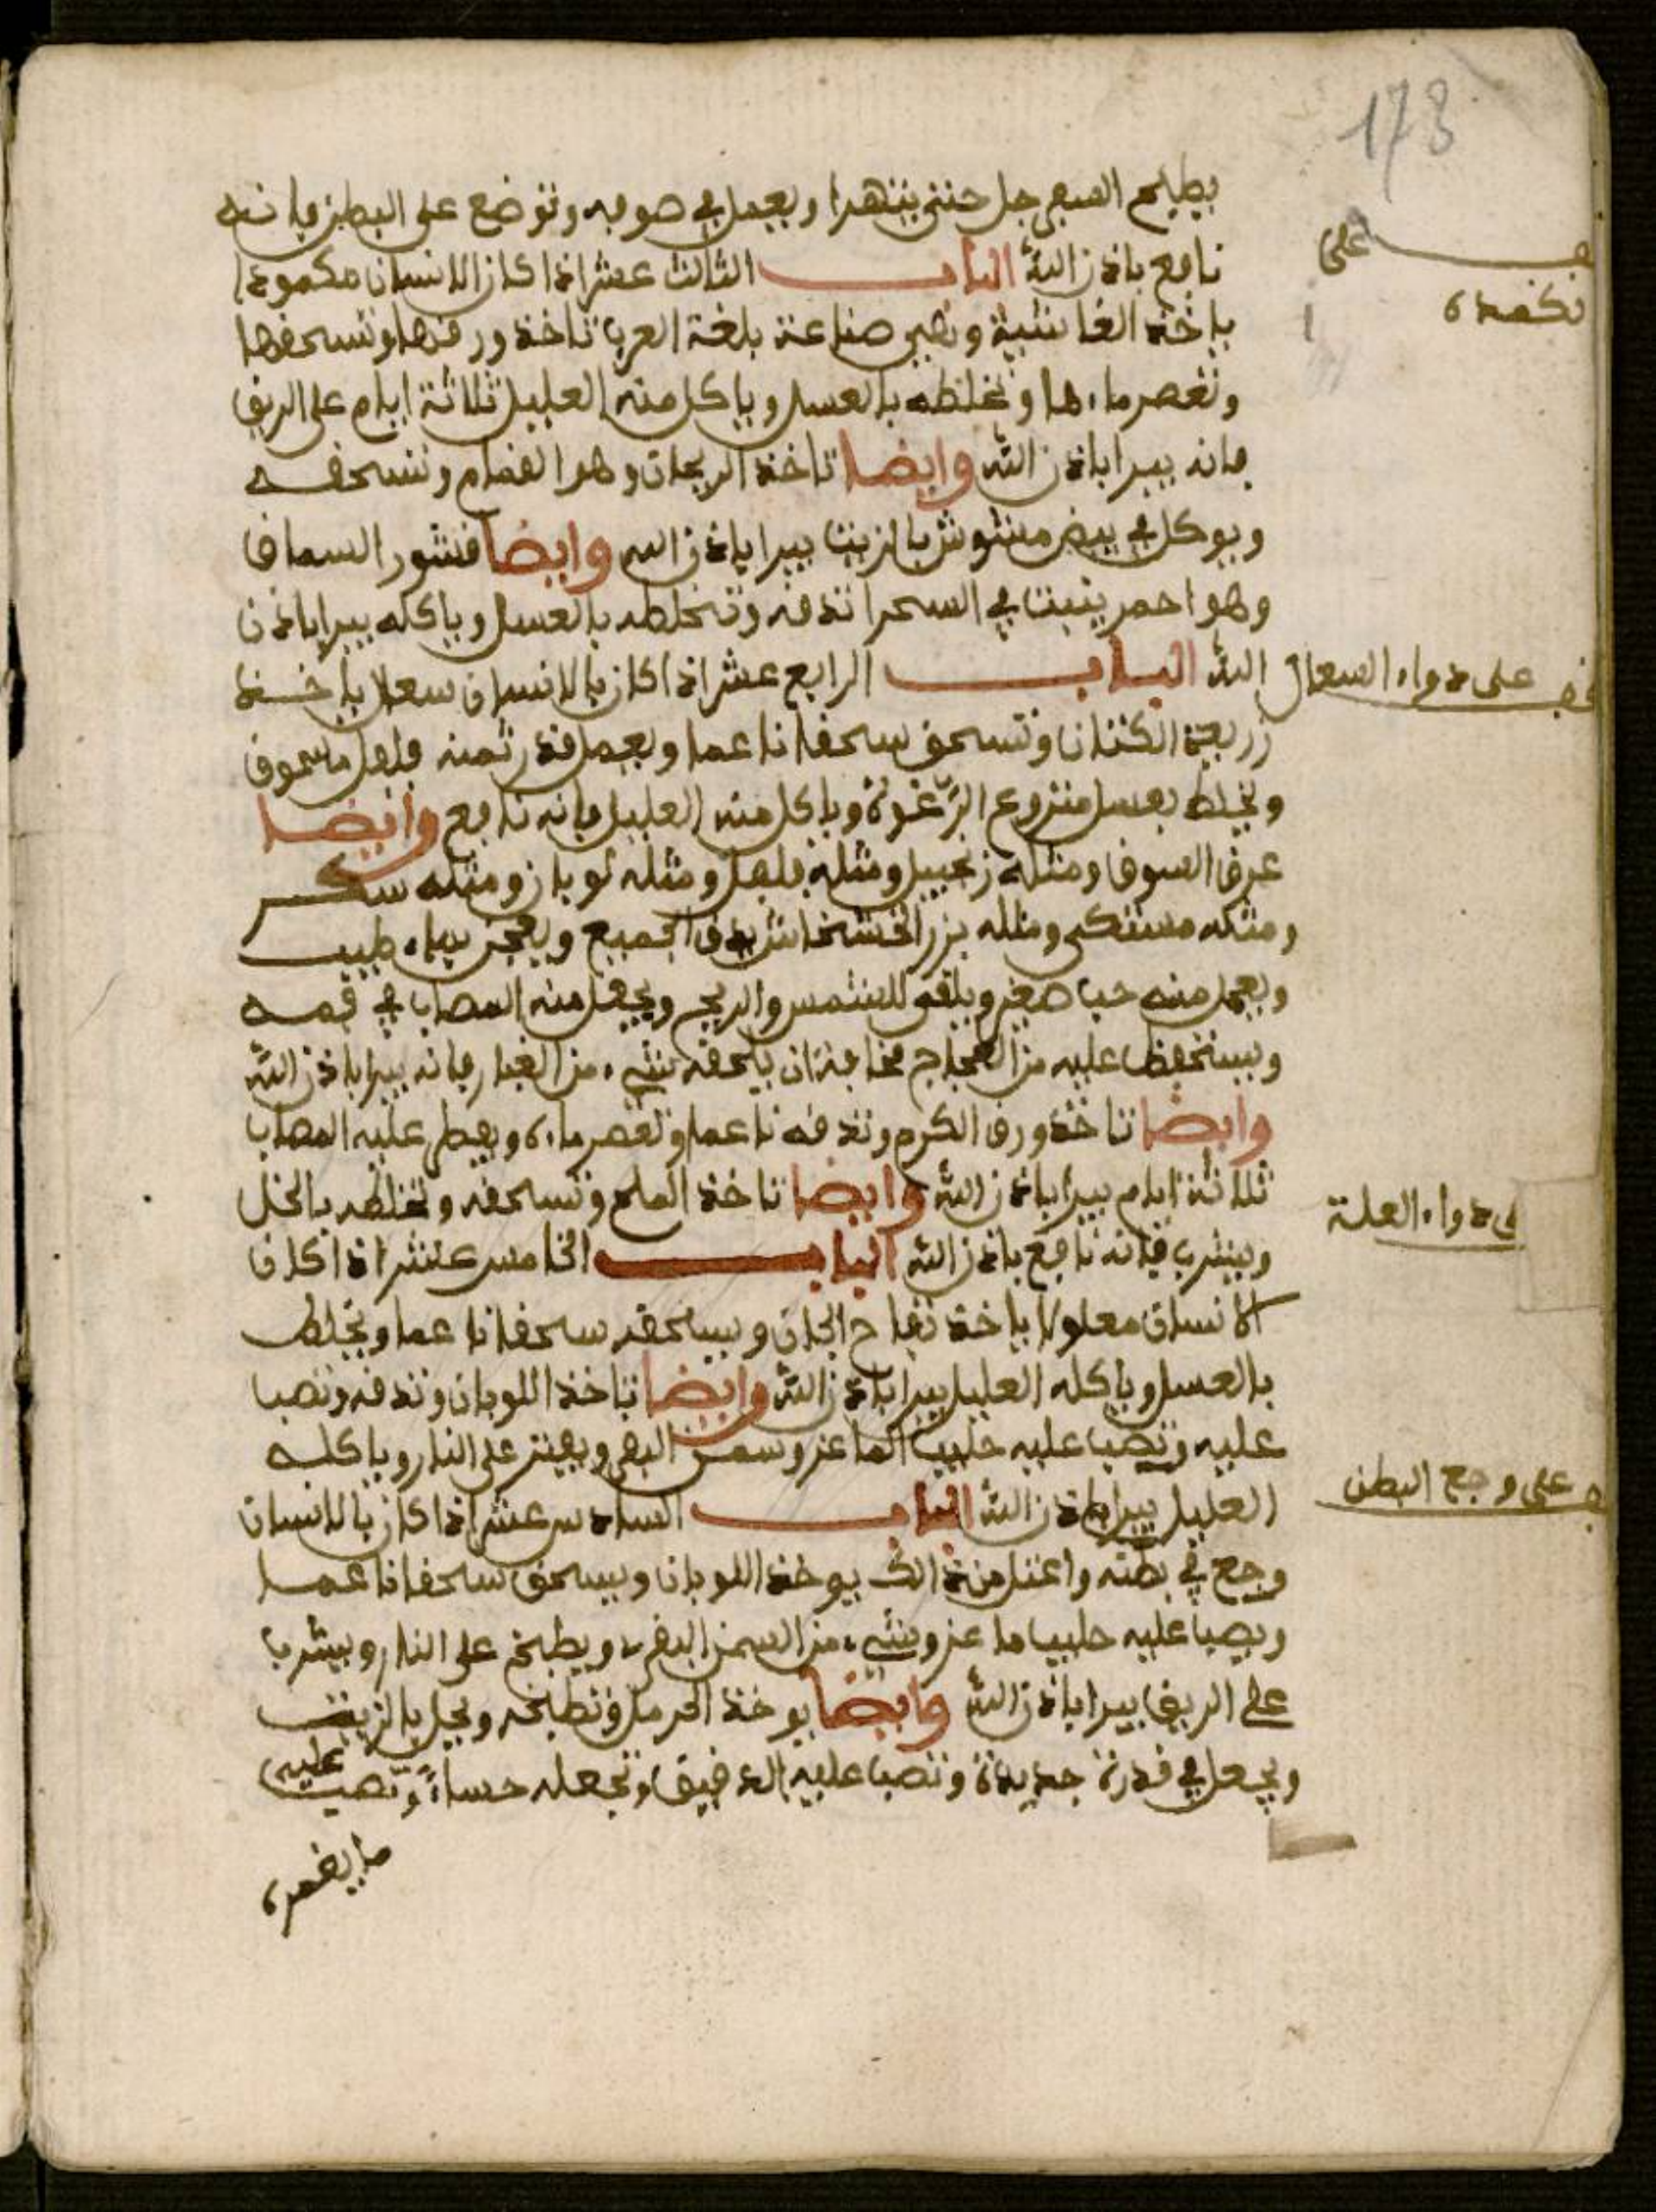 178
يطبخ السفرجل حتى يتهرا ويعمل في صوفه وتوضع على البطن فانه
نافع باذن الله الباب الثالث عشر اذا كان الانسان مكمودا
ياخذ الغاشية وهي صناعة بلغة العرب تاخذ ورقها وتسحقها
وتعصر ماءها وتخلطه بالعسل وياكل منه العليل ثلاثة ايام على الريق
فانه يبرا باذن الله وايضا تاخذ الريحان وهو وتسحقه
ويوكل في بيض مشوش بالزيت يبرا باذن الله وايضا قشور السماق
وهو احمر ينبت في السحرا تدقه وتخلطه بالعسل وياكله يبرا باذن
الله الباب الرابع عشر اذا كان بالانسان سعال ياخذ
زريعة الكتان وتسحق سحقا ناعما ويعمل قدر ثمنه فلفل مسحوق
ويخلط بعسل منزوع الرّغوة وياكل منه العليل فانه نافع وايضا
عرق السوق ومثله زنجبيل ومثله فلفل ومثله لوبان ومثله سكر
ومثله مستكى ومثله بزر الخشخاش يدق الجميع ويعجن بماء طيب
ويعمل منه حب صغر ويلقى للشمس والريح ويجعل منه المصاب في فمه
ويستحفظ عليه من العجاج مخافة ان يلحقه شيء من الغبار فانه يبرا باذن الله
وايضا تاخذ ورق الكرم وتدقه ناعما وتعصر ماءه ويفطر عليه المصاب
ثلاثة ايام يبرا باذن الله وايضا تاخذ الملح وتسحقه وتخلطه بالخل
ويشرب فانه نافع باذن الله الباب الخامس عشر اذا كان
الانسان معلولا ياخذ تفاح الجان ويسحقه سحقا ناعما ويخلط
بالعسل وياكله العليل يبرا باذن الله وايضا تاخذ اللوبان وتدقه وتصب
عليه وتصب عليه حليب الماعز وسمن البقر ويهبز على النار وياكله
العليل يبرا باذن الله الباب السادس عشر اذا كان بالانسان
وجع في بطنه واعتل من ذالك يوخذ اللوبان ويسحق سحقا ناعما
ويصب عليه حليب ماعز وشيء من السمن البقري ويطبخ على النار ويشرب
على الريق يبرا باذن الله وايضا يوخذ الحرمل وتطبخه ويحل بالزيت
ويجعل في قدرة جديدة وتصب عليه الدقيق وتجعله حساءً وتصب عليه
ما يغمره
على
نكمده
على دواء السعال
دواء العلة
على وجع البطن